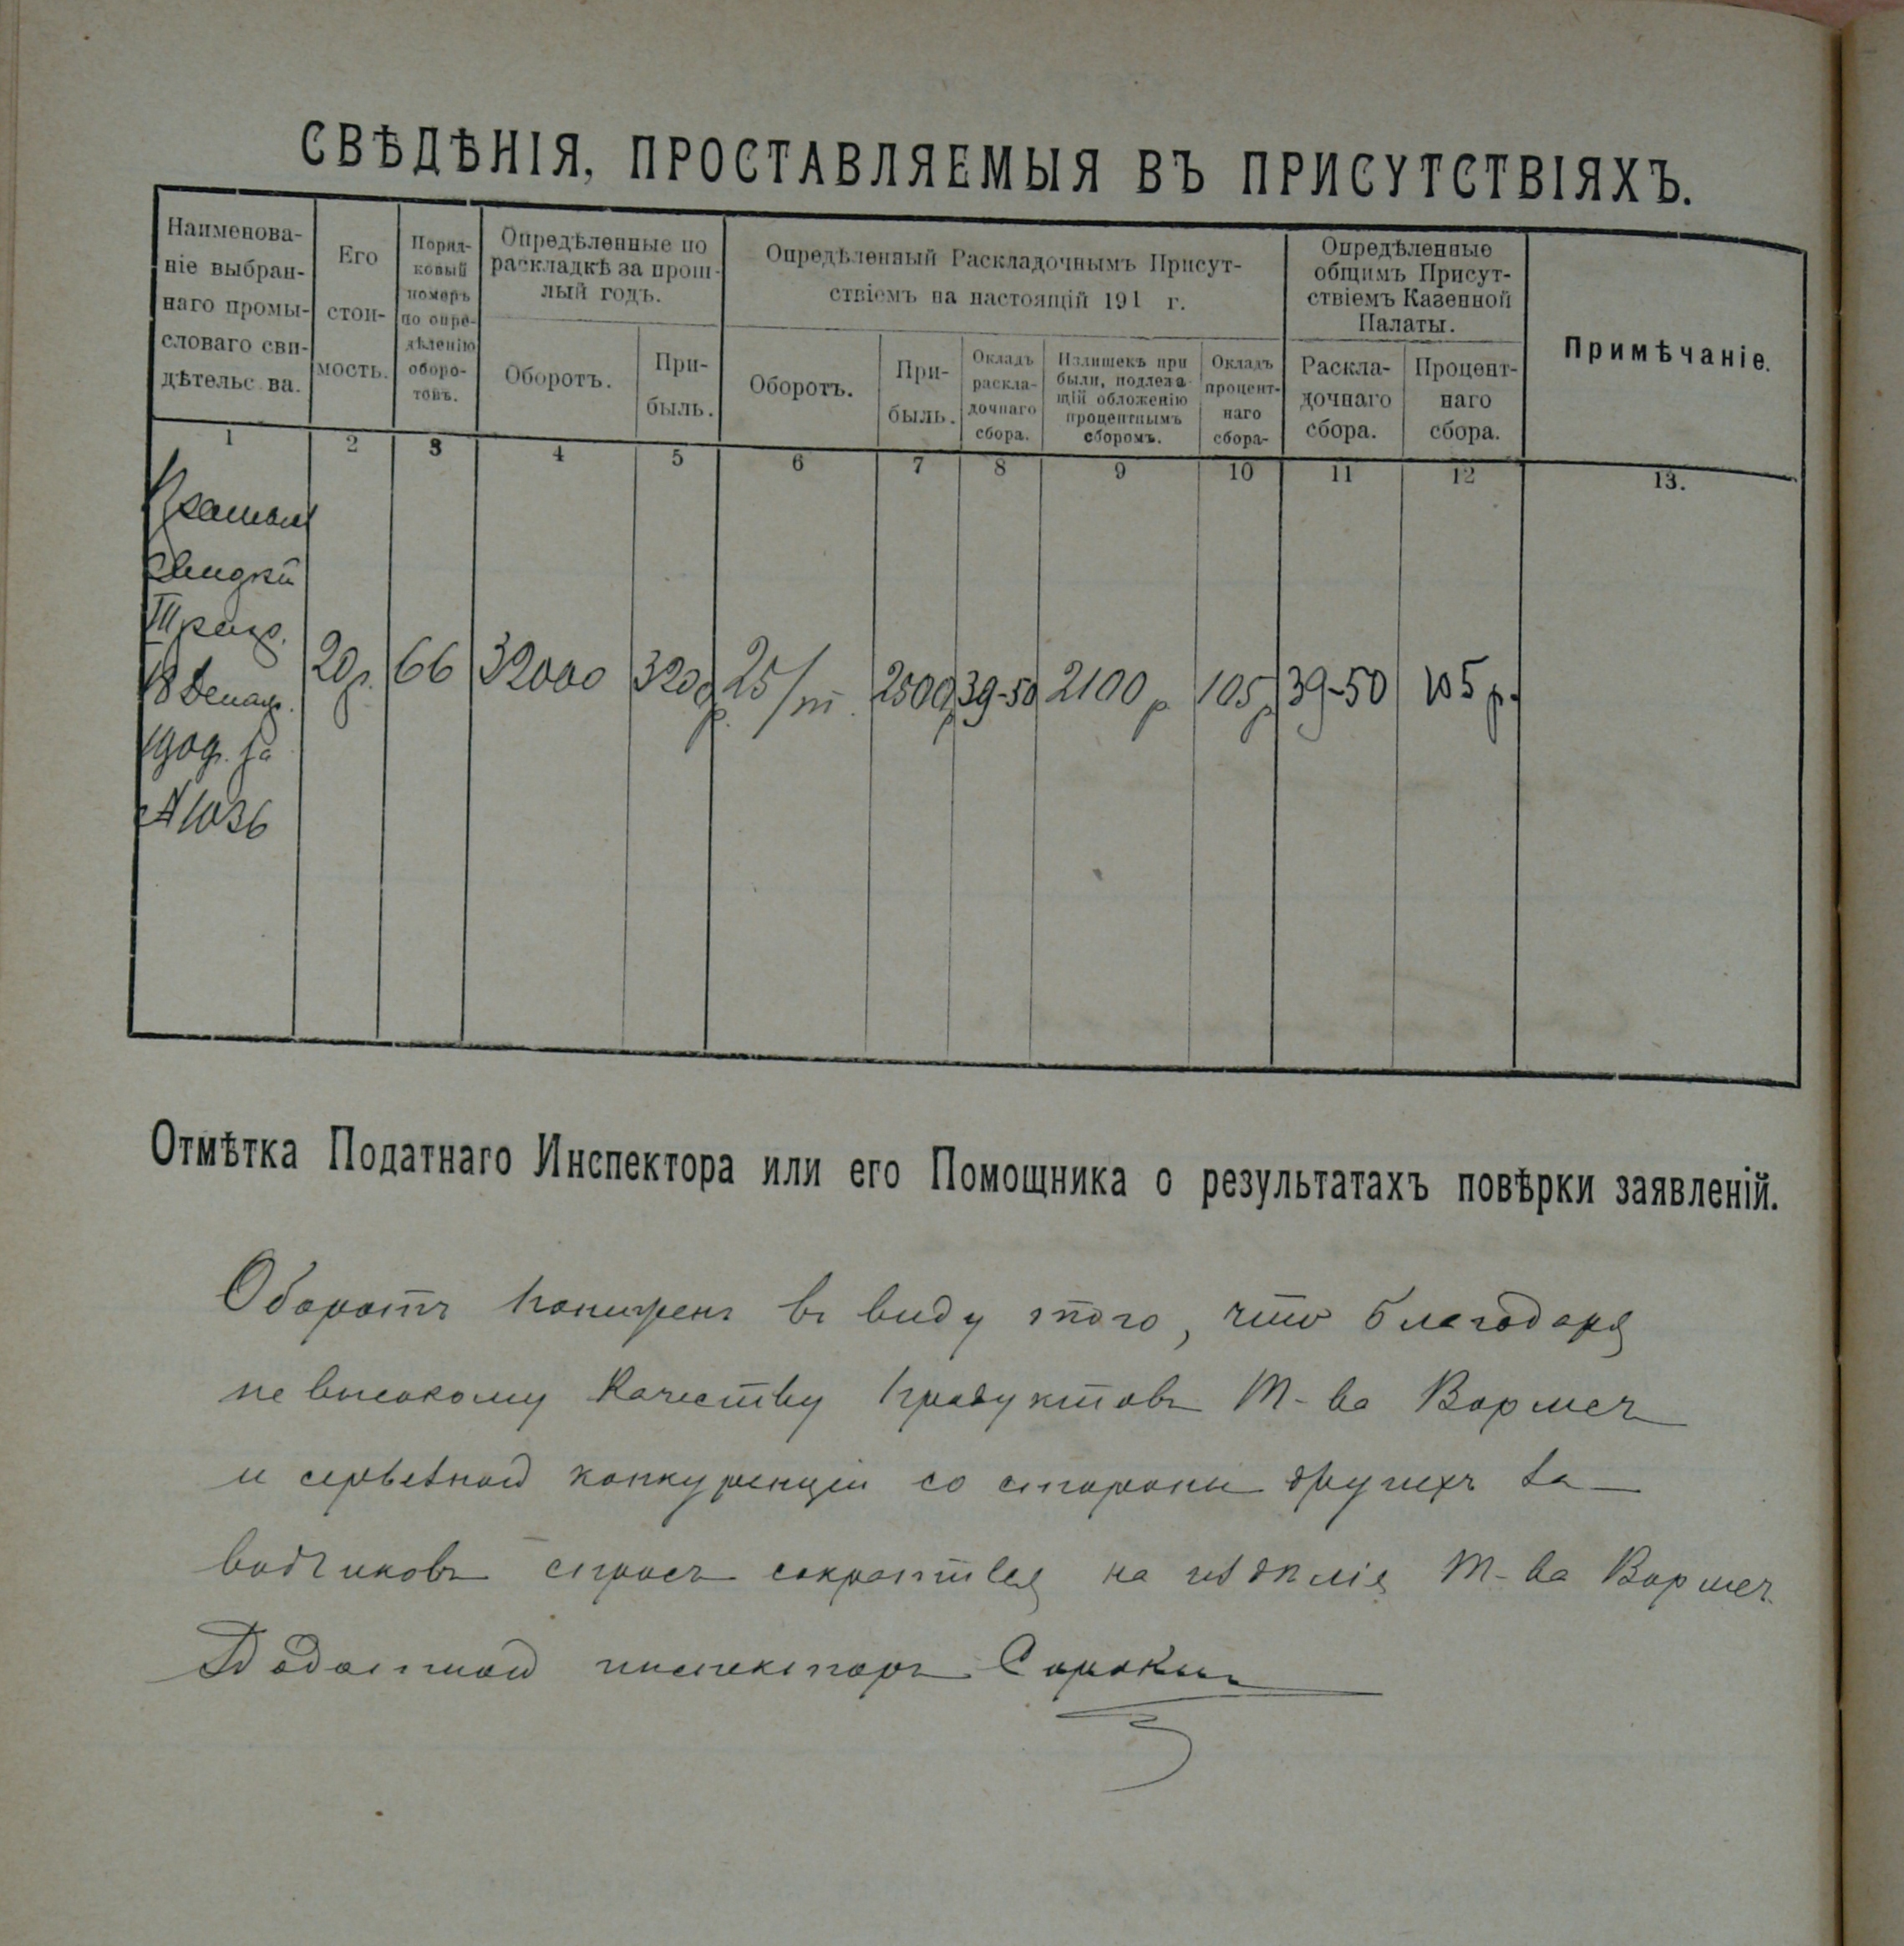 СВѢДѢНІЯ, ПРОСТАВЛЯЕМЫЯ ВЪ ПРИСУТСТВІЯХЪ.
Наименова-
ніе выбран-
наго промы-
словаго сви-
дѣтельс ва.
Его
стои-
мость.
Поряд-
ковый
номеръ
по опре-
дѣленію
оборо-
товъ.
Опредѣленные по
раскладкѣ за прош-
лый годъ.
Оборотъ.
При-
быль.
Опредѣленный Раскладочнымъ Присут-
ствіемъ на настоящій 191 г.
Оборотъ.
При-
быль.
Окладъ
раскла-
дочнаго
сбора.
Излишекъ при
были, подлежа-
щій обложенію
процентнымъ
сборомъ.
Окладъ
процент-
наго
сбора-
Опредѣленные
общимъ Присут-
ствіемъ Казенной
Палаты.
Раскла-
дочнаго
сбора.
Процент-
наго
сбора.
Примѣчаніе.
1 2 3 4 5 6 7 8 9 10 11 12 13.
III разр.
18 Декабр.
1909г. за
№ 1036
20р. 66 32000 3200р. 25/т. 2500р 39-50 2100р 105р 39-50 105р.
Отмѣтка Податнаго Инспектора или его Помощника о результатахъ повѣрки заявленій.
Оборотъ пониженъ въ виду этого, что благодаря
не высокому качеству продуктовъ Т-ва Вормсъ
и серьезной конкуренціи со стороны другихъ за-
водчиковъ спросъ сократился на издѣлія Т-ва Вормсъ.
Податной инспекторъ Сорокинъ